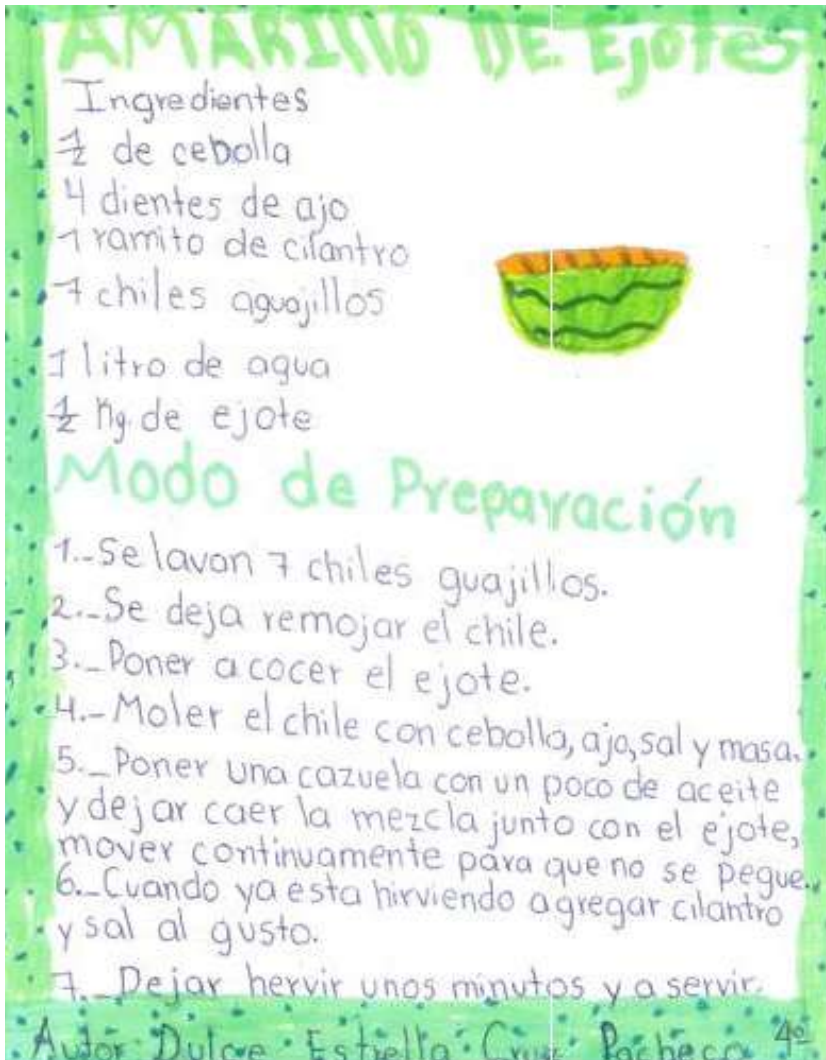 AMARILLO DE Ejotes
Ingredientes
1/2 de cebolla
4 dientes de ajo
1 ramito de cilantro
7 chiles aguajillos
1 litro de agua
1/2 Kg. de ejote
Modo de Preparación
1.-Se lavan 7 chiles guajillos.
2.-Se deja remojar el chile.
3.-Poner a cocer el ejote.
4.-Moler el chile con cebolla, ajo, sal y masa.
5.-Poner una cazuela con un poco de aceite
y dejar caer la mezcla junto con el ejote,
mover continuamente para que no se pegue.
6.-Cuando ya esta hirviendo agregar cilantro
y sal al gusto.
7.-Dejar hervir unos minutos y a servir.
Autor Dulce Estrella Cruz Pacheco 4º